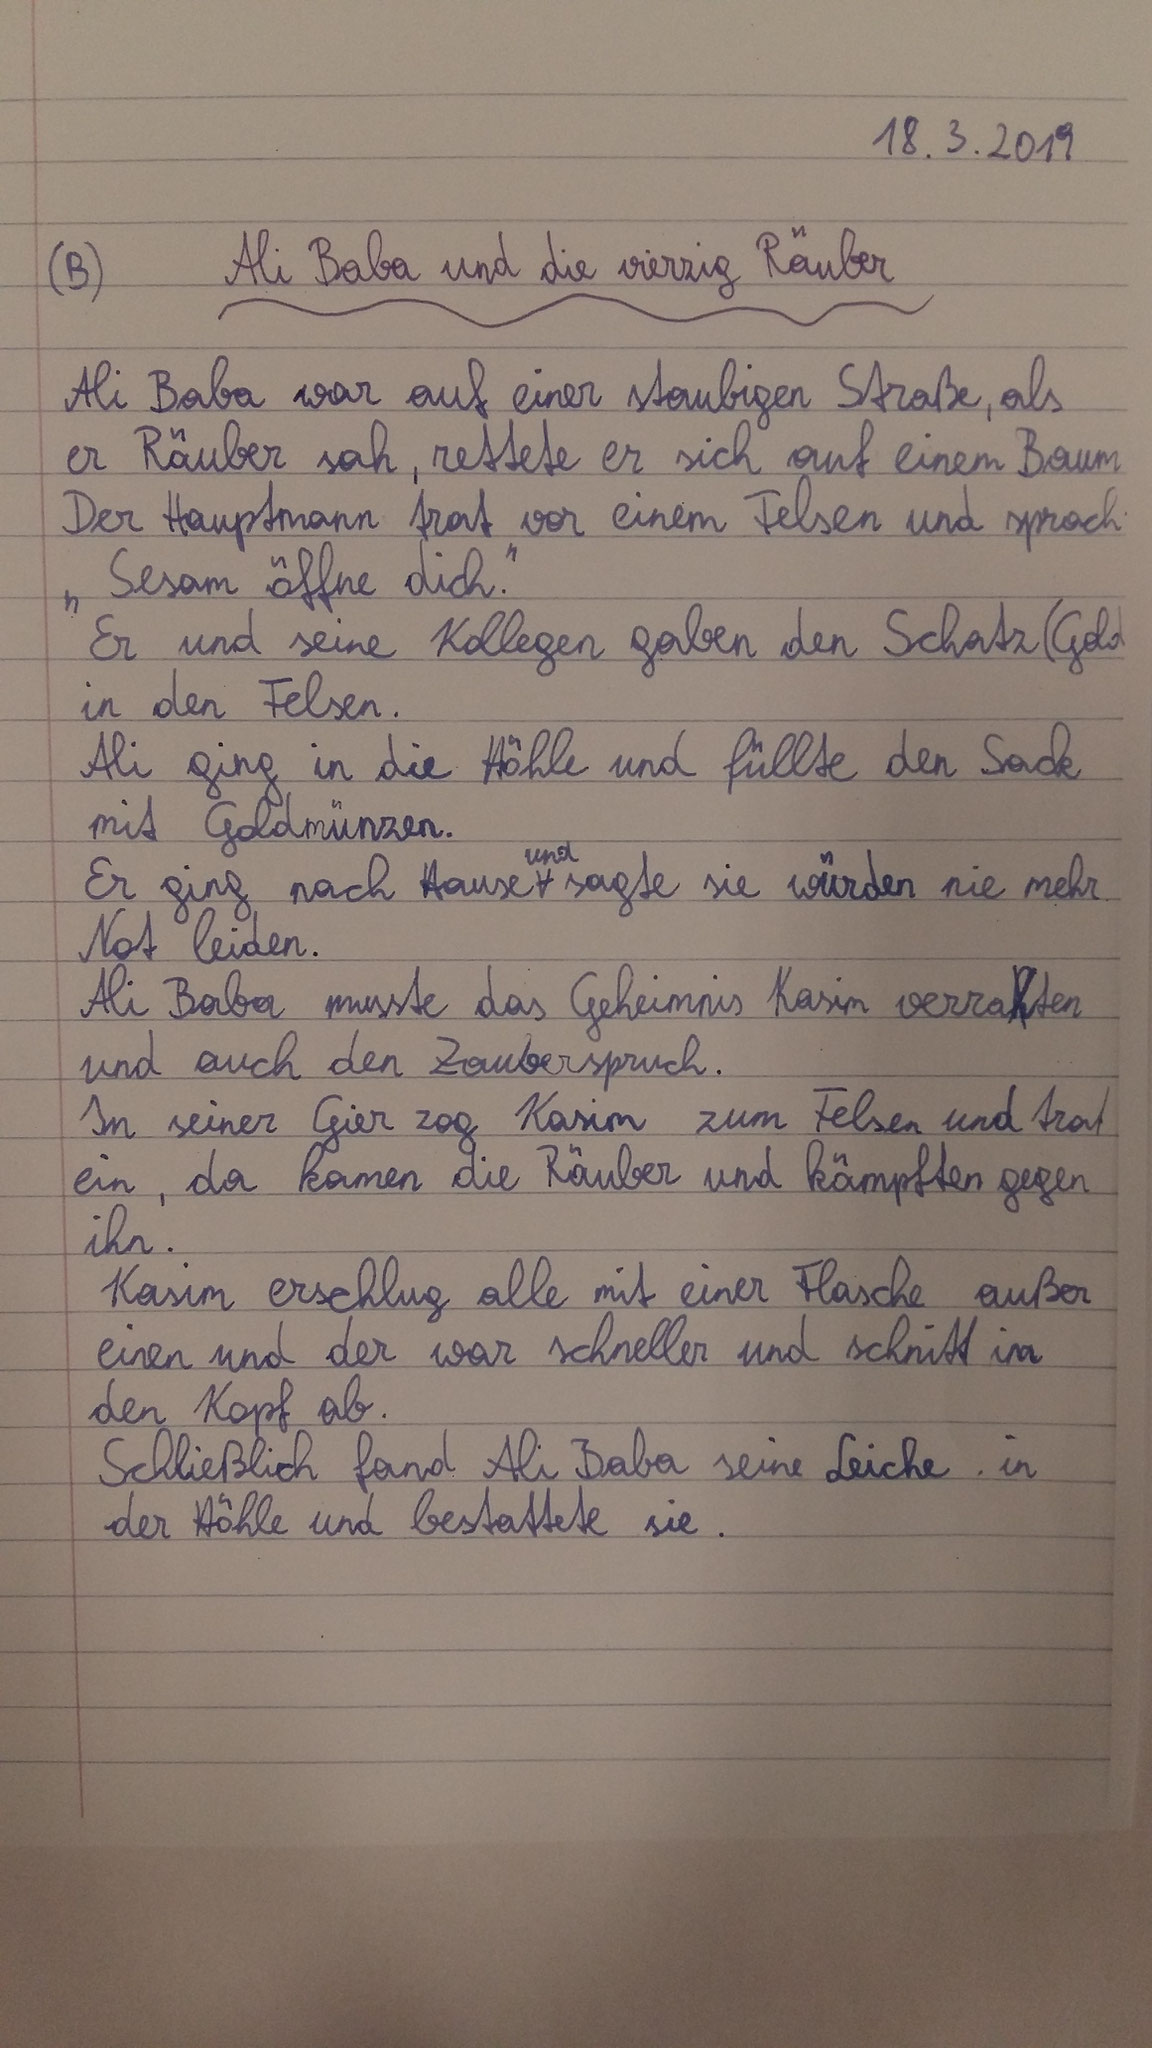 18.3.2019
(B) Ali Baba und die vierzig Räuber
Ali Baba war auf einer staubigen Straße, als
er Räuber sah, rettete er sich auf einem Baum
Der Hauptmann trat vor einem Felsen und sprach
„Sesam öffne dich."
Er und seine Kollegen gaben den Schatz (Gold
in den Felsen.
Ali ging in die Höhle und füllte den Sack
mit Goldmünzen.
Er ging nach Hause und sagte sie würden nie mehr
Not leiden.
Ali Baba musste das Geheimnis Kasim verraten
und auch den Zauberspruch.
In seiner Gier zog Kasim zum Felsen und trat
ein, da kamen die Räuber und kämpften gegen
ihn.
Kasim erschlug alle mit einer Flasche außer
einen und der war schneller und schnitt im
den Kopf ab.
Schließlich fand Ali Baba seine Leiche in
der Höhle und bestattete sie.